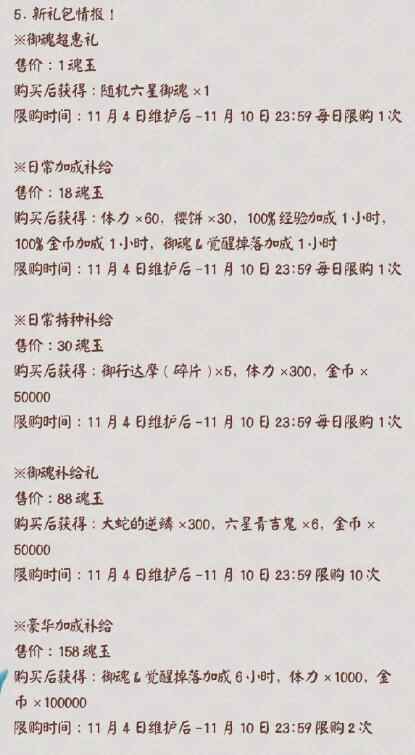 5. 新礼包情报！
※御魂超惠礼
售价：1魂玉
购买后获得：随机六星御魂×1
限购时间：11月4日维护后-11月10日23:59每日限购1次
※日常加成补给
售价：18魂玉
购买后获得：体力×60，樱饼×30，100%经验加成1小时，
100%金币加成1小时，御魂&觉醒掉落加成1小时
限购时间：11月4日维护后-11月10日23:59每日限购1次
※日常特种补给
售价：30魂玉
购买后获得：御行达摩（碎片）×5，体力×300，金币×
50000
限购时间：11月4日维护后-11月10日23:59每日限购1次
※御魂补给礼
售价：88魂玉
购买后获得：大蛇的逆鳞×300，六星青吉鬼×6，金币×
50000
限购时间：11月4日维护后-11月10日23:59限购10次
※豪华加成补给
售价：158魂玉
购买后获得：御魂&觉醒掉落加成6小时，体力×1000，金
币×100000
限购时间：11月4日维护后-11月10日23:59限购2次